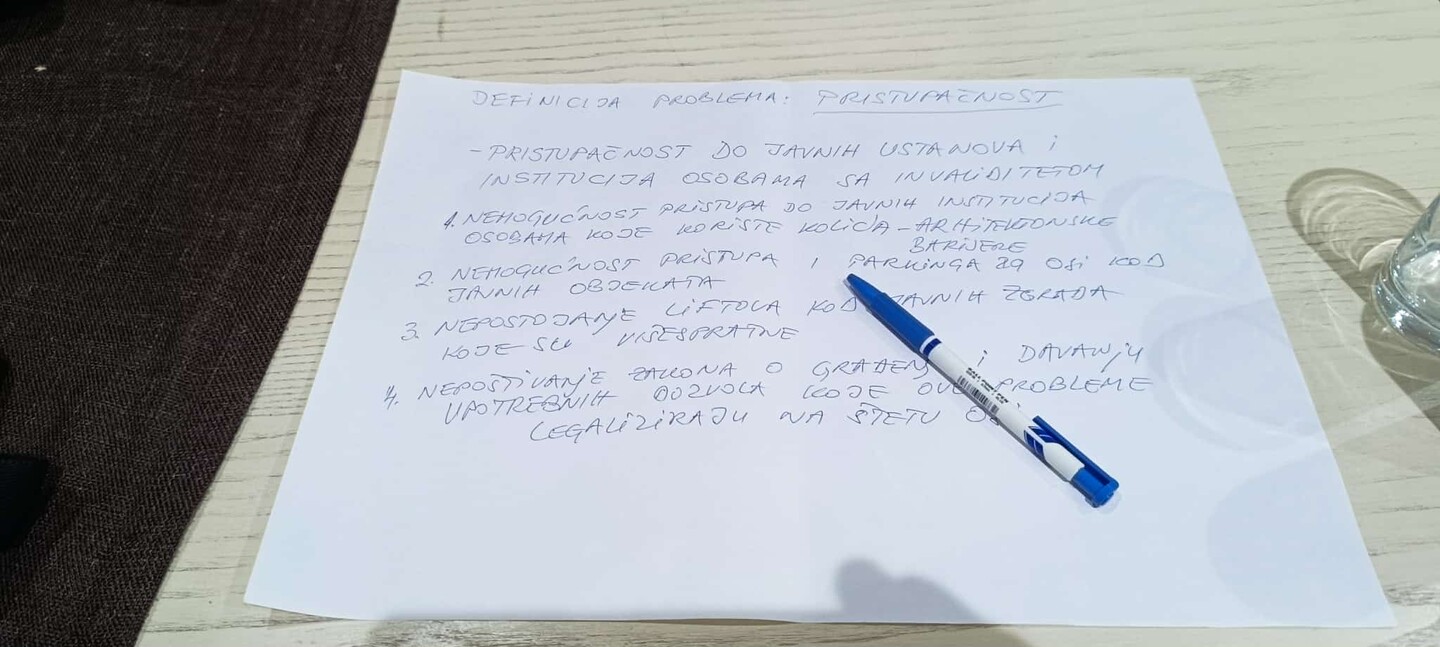 DEFINICIJA PROBLEMA: PRISTUPAČNOST
- PRISTUPAČNOST DO JAVNIH USTANOVA i
INSTITUCIJA OSOBAMA SA INVALIDITETOM
1. NEMOGUĆNOST PRISTUPA DO JAVNIH INSTITUCIJA
OSOBAMA KOJE KORISTE KOLICA - ARHITEKTONSKE
BARIJERE
2. NEMOGUĆNOST PRISTUPA I PARKINGA ZA OSI KOD
JAVNIH OBJEKATA
3. NEPOSTOJANJE LIFTOVA KOD JAVNIH ZGRADA
KOJE SU VIŠESPRATNE
4. NEPOŠTIVANJE ZAKONA O GRAĐENJ i DAVANJU
UPOTREBNIH DOZVOLA KOJE OVE PROBLEME
LEGALIZIRAJU NA ŠTETU